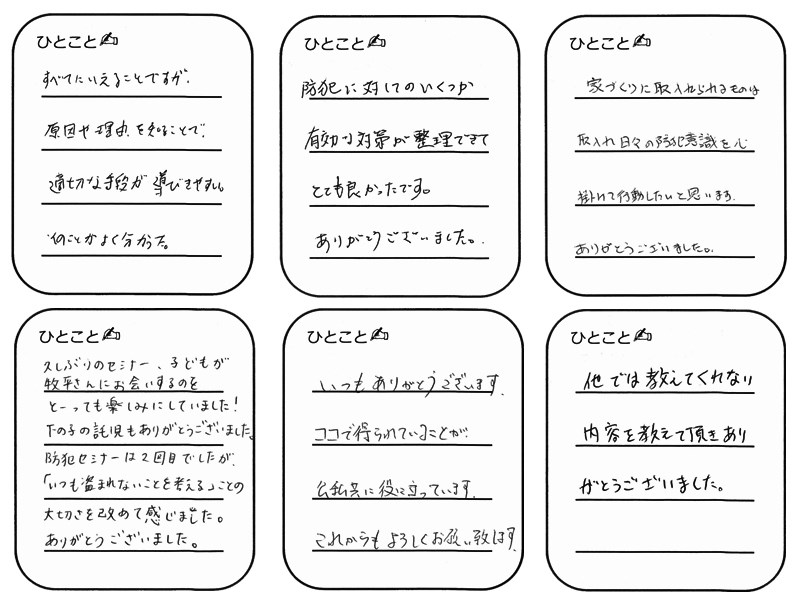 ひとこと
すべてにいえることですが、
原因や理由を知ることで、
適切な手段が導びきやすい。
のことがよく分かった。
ひとこと
防犯に対してのいくつか
有効な対策が整理できて
とても良かったです。
ありがとうございました。
ひとこと
家づくりに取入れられるものは
取入れ日々の防犯意識を心
掛けて行動したいと思います。
ありがとうございました。
ひとこと
久しぶりのセミナー、子どもが
牧平さんにお会いするのを
とーっても楽しみにしていました!
下の子の託児もありがとうございました。
防犯セミナーは2回目でしたが、
「いつも盗まれないことを考える」ことの
大切さを改めて感じました。
ありがとうございました。
ひとこと
いつもありがとうございます。
ココで得られていることが、
公私共に役に立っています。
これからもよろしくお願い致します。
ひとこと
他では教えてくれない
内容を教えて頂きあり
がとうございました。